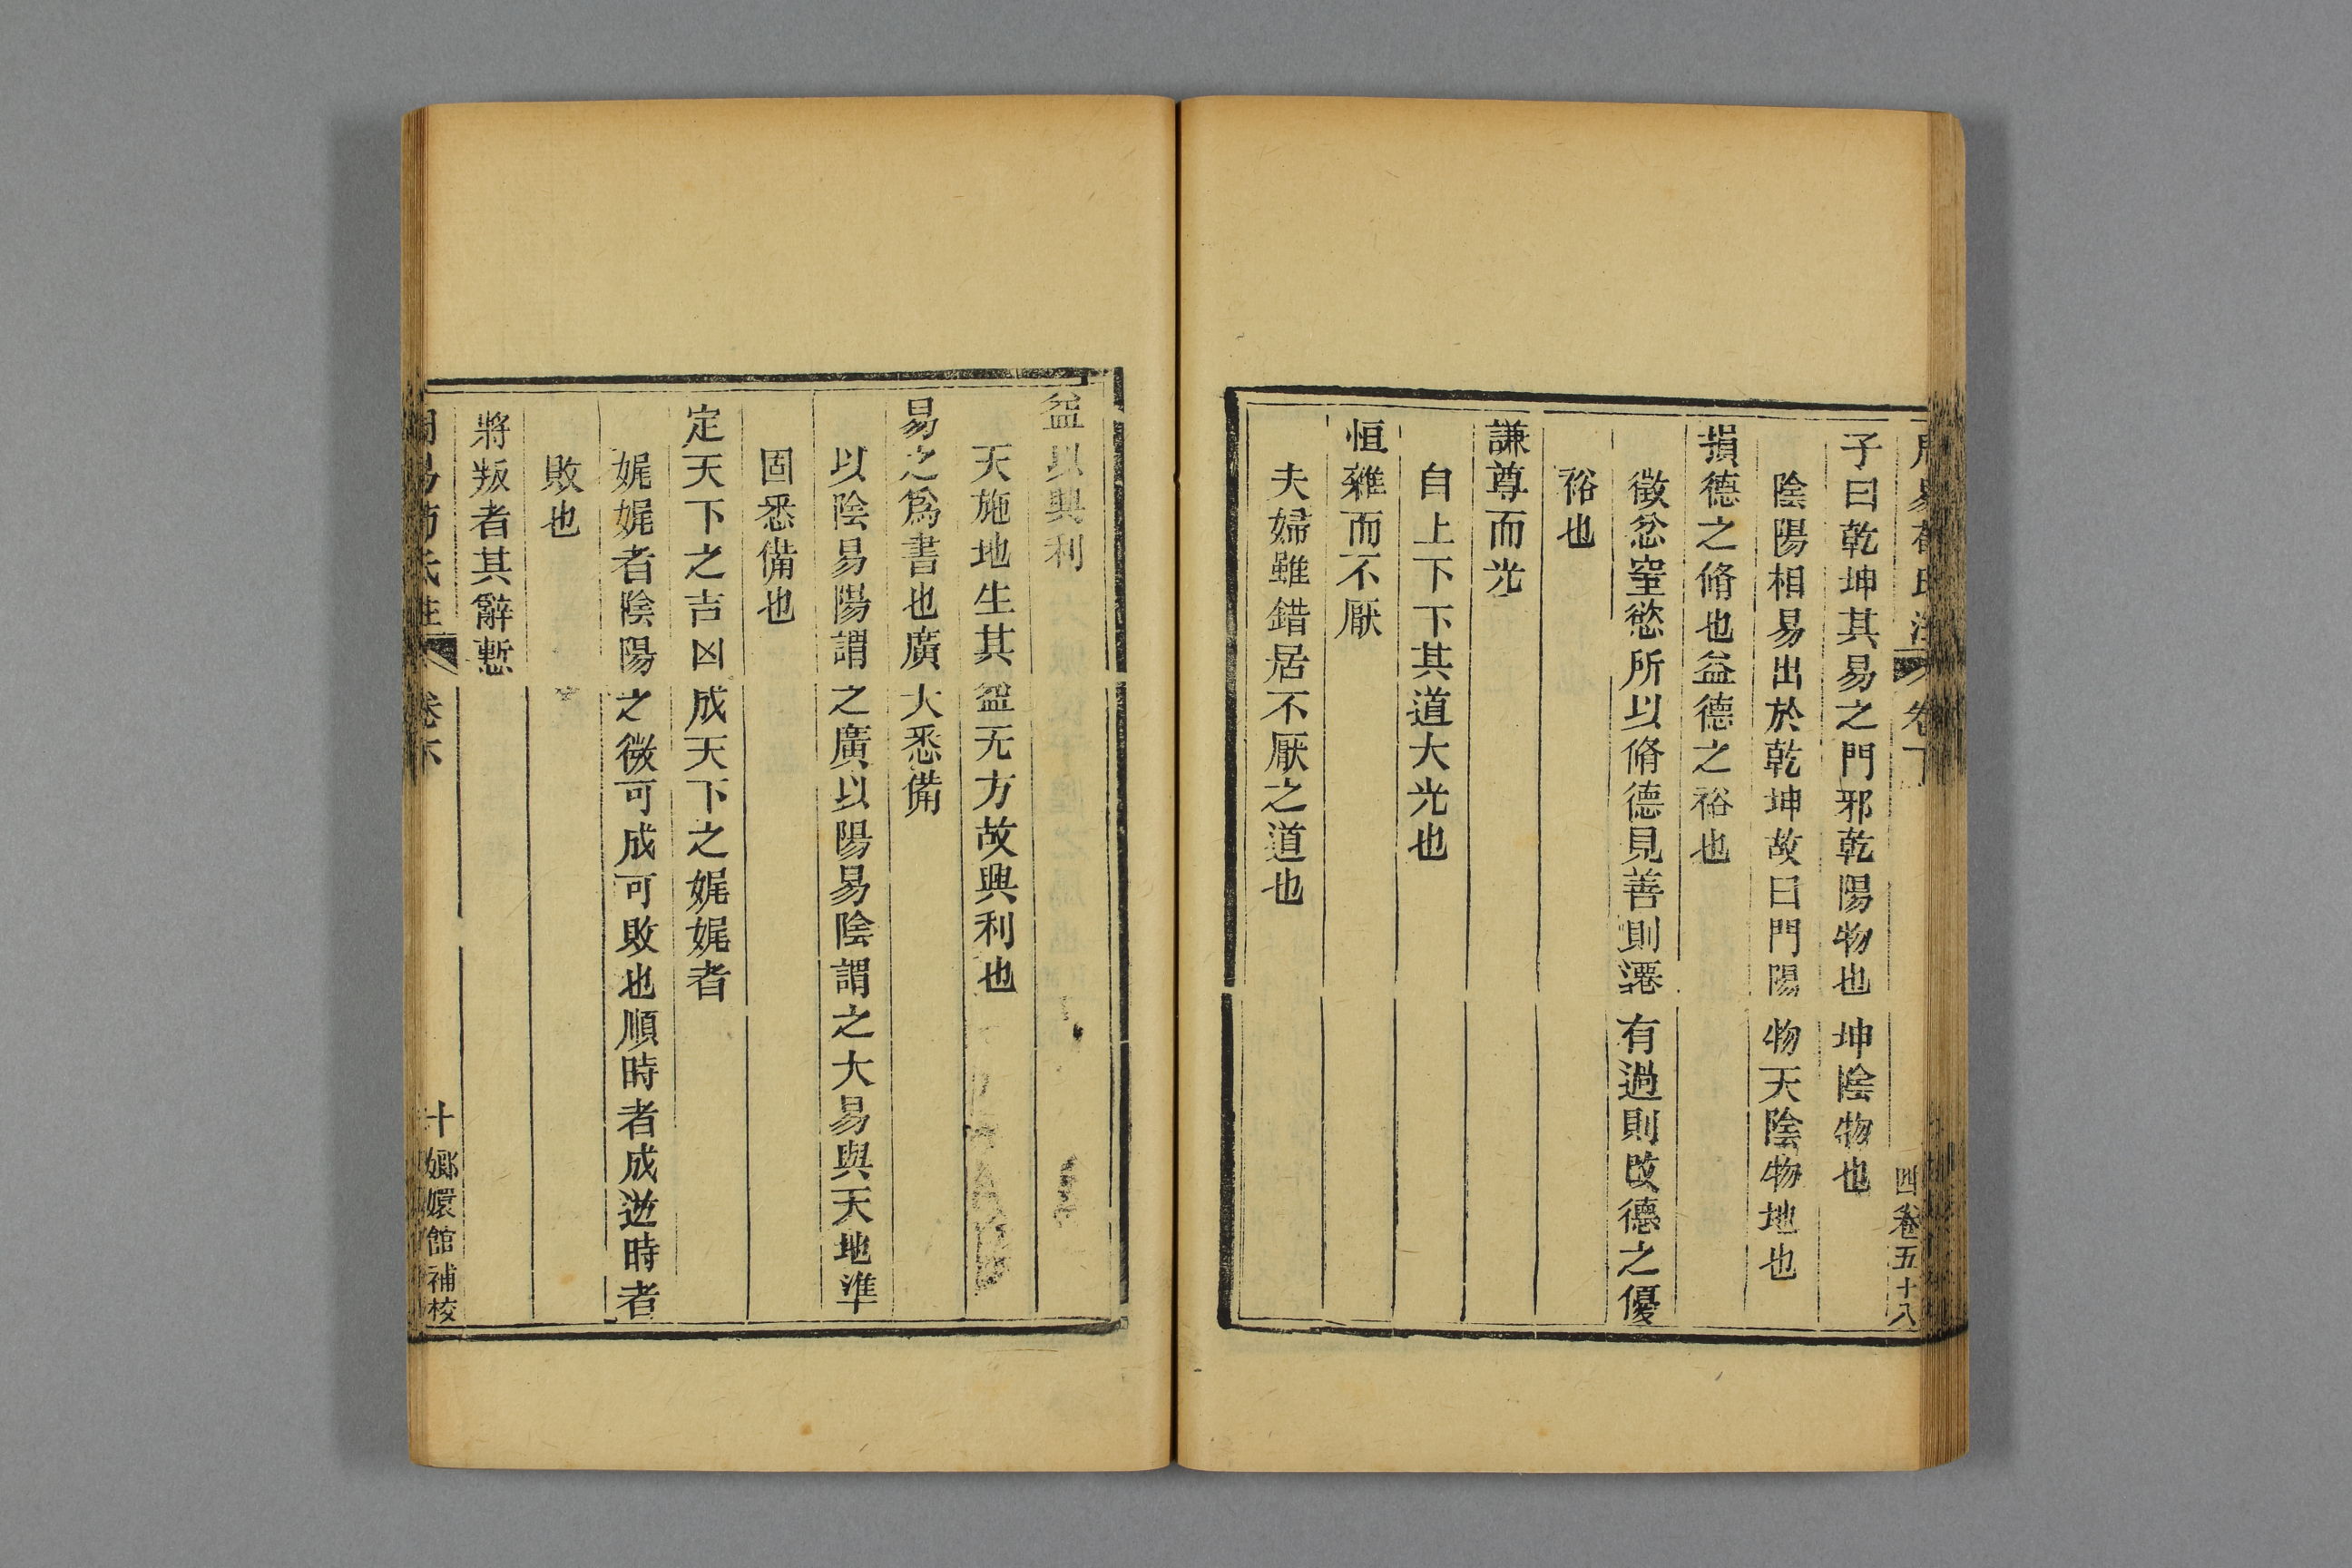 周易荀氏注 卷下
四卷五十八
子曰乾坤其易之門邪乾陽物也坤陰物也
陰陽相易出於乾坤故曰門陽物天陰物地也
損德之脩也益德之裕也
徵忿窒慾所以脩德見善則遷有過則改德之優
裕也
謙尊而光
自上下下其道大光也
恒雜而不厭
夫婦雖錯居不厭之道也
益以興利
天施地生其益无方故興利也
易之爲書也廣大悉備
以陰易陽謂之廣以陽易陰謂之大易與天地準
固悉備也
定天下之吉凶成天下之娓娓者
娓娓者陰陽之微可成可敗也順時者成逆時者
敗也
將叛者其辭慙
周易荀氏注 卷下
十 嫏嬛館補校